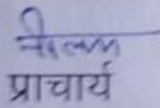 नीलम
प्राचार्य